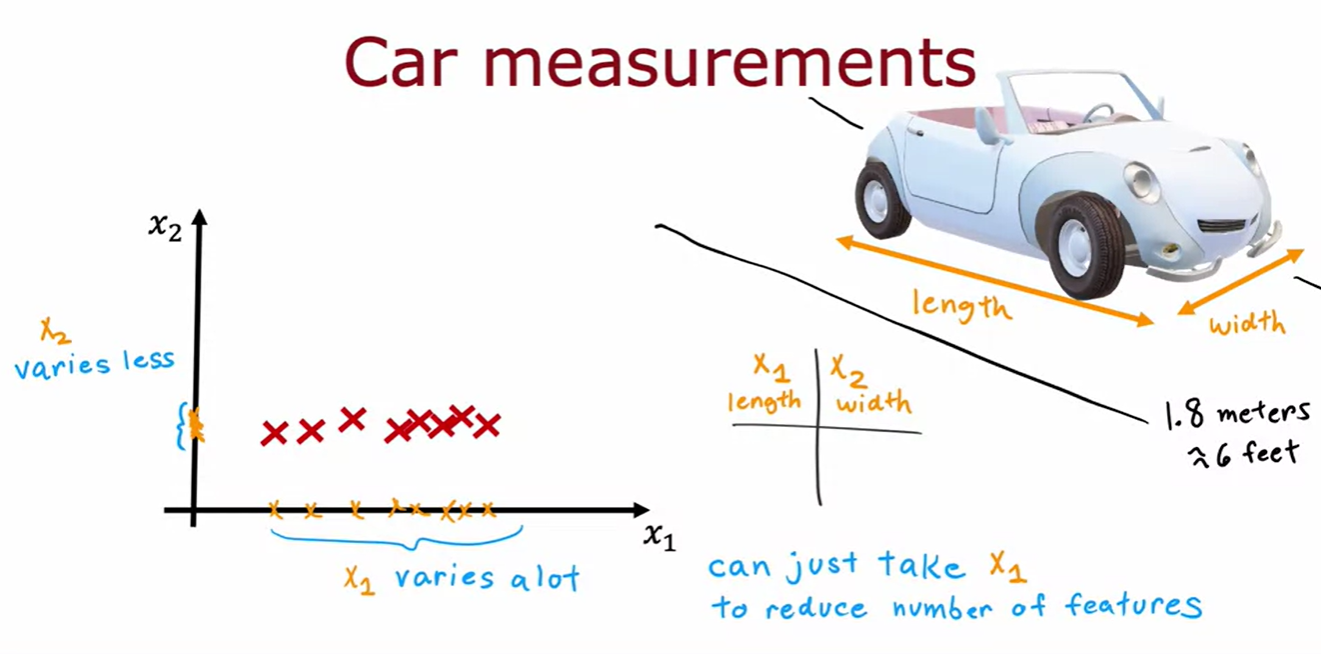 Car measurements
x₂
x₂
varies less
x₁
x₁ varies alot
length
width
x₁ x₂
length width
1.8 meters
≈6 feet
can just take x₁
to reduce number of features